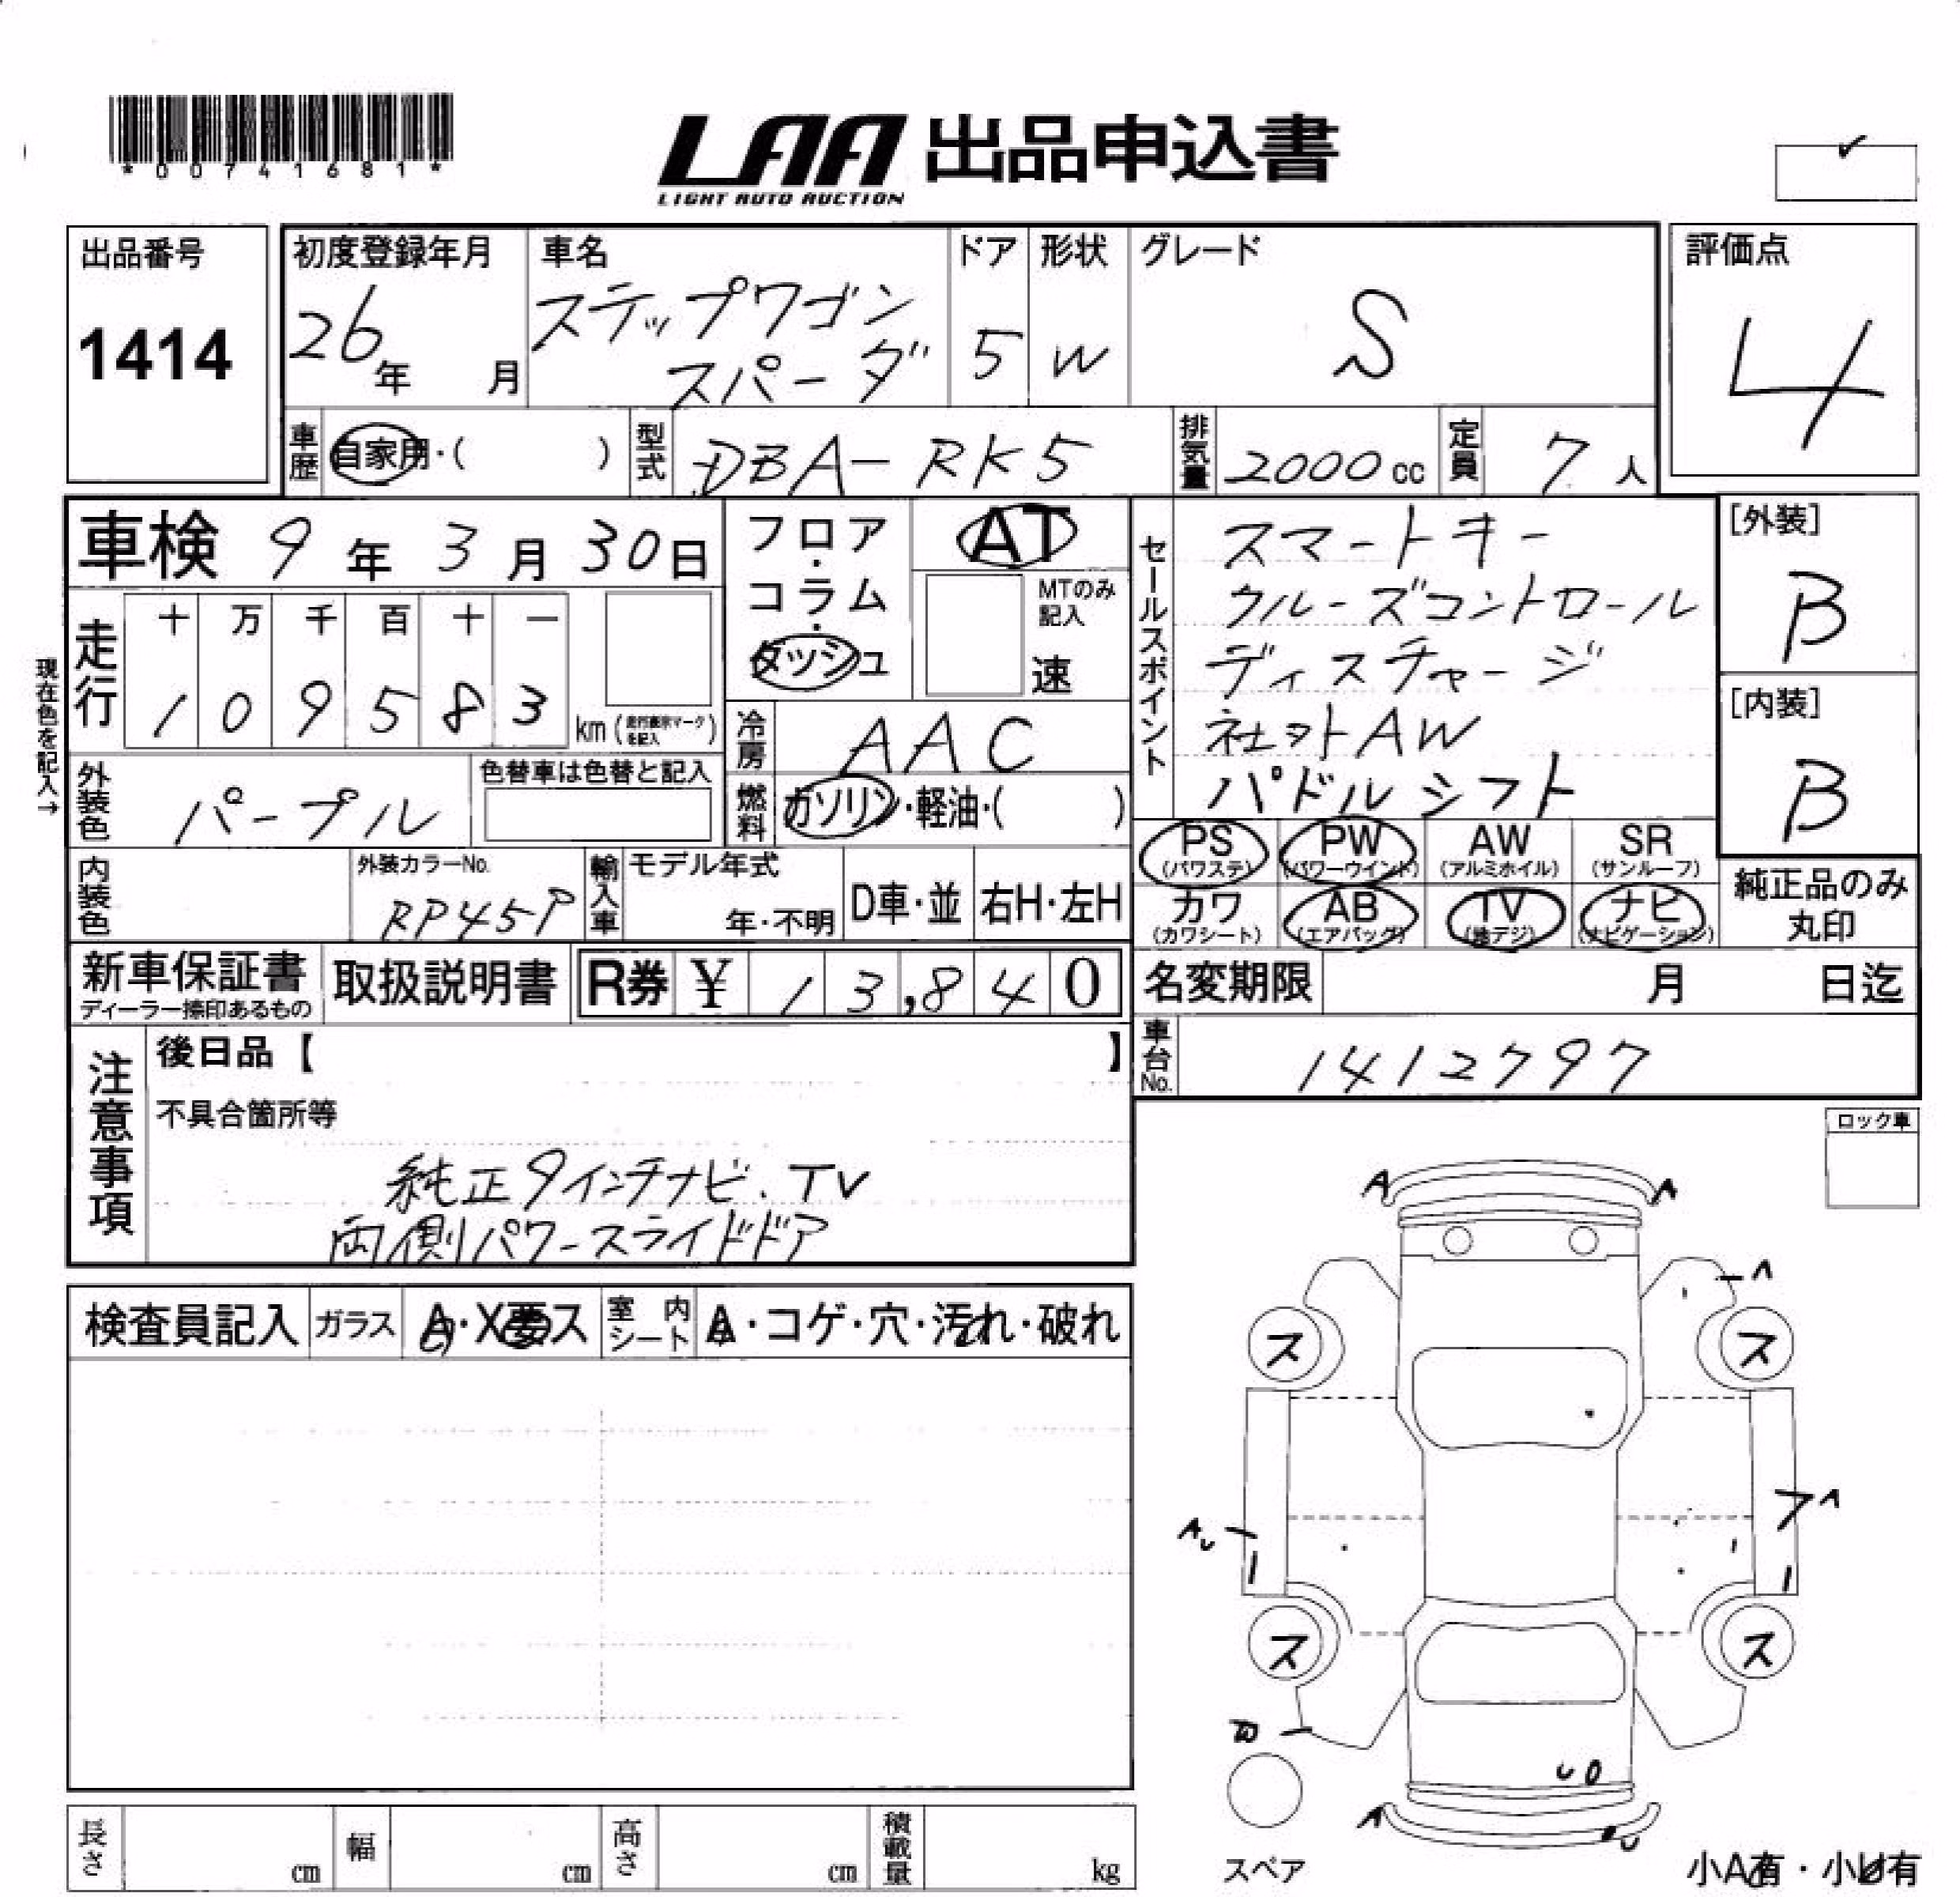 *00741681*
LAA 出品申込書
LIGHT AUTO AUCTION
出品番号
1414
初度登録年月
26年 月
車名
ステップワゴン
スパーダ
ドア
5
形状
W
グレード
S
評価点
4
車歴 自家用・( )
型式 DBA-RK5
排気量 2000 cc
定員 7 人
車検 9年 3月 30日
フロア・コラム・ダッシュ
AT
MTのみ記入
速
セールスポイント
スマートキー
クルーズコントロール
ディスチャージ
社外AW
パドルシフト
[外装]
B
[内装]
B
現在色を記入→
走行
十 万 千 百 十 一
1 0 9 5 8 3 km (走行表示マークを記入)
冷房 AAC
外装色 パープル
色替車は色替と記入
燃料 ガソリン・軽油・( )
PS (パワステ)
PW (パワーウインド)
AW (アルミホイル)
SR (サンルーフ)
カワ (カワシート)
AB (エアバッグ)
TV (地デジ)
ナビ (ナビゲーション)
純正品のみ
丸印
内装色
外装カラーNo.
RP45P
輸入車
モデル年式
年・不明
D車・並
右H・左H
新車保証書
ディーラー捺印あるもの
取扱説明書
R券 ¥ 13,840
名変期限 月 日迄
車台No. 1412797
注意事項
後日品【 】
不具合箇所等
純正9インチナビ.TV
両側パワースライドドア
ロック車
検査員記入
ガラス A・X要ス
室内シート A・コゲ・穴・汚れ・破れ
A A
A
ス ス
A
AU
ス ス
U
A
U
スペア
小A有・小U有
長さ cm
幅 cm
高さ cm
積載量 kg